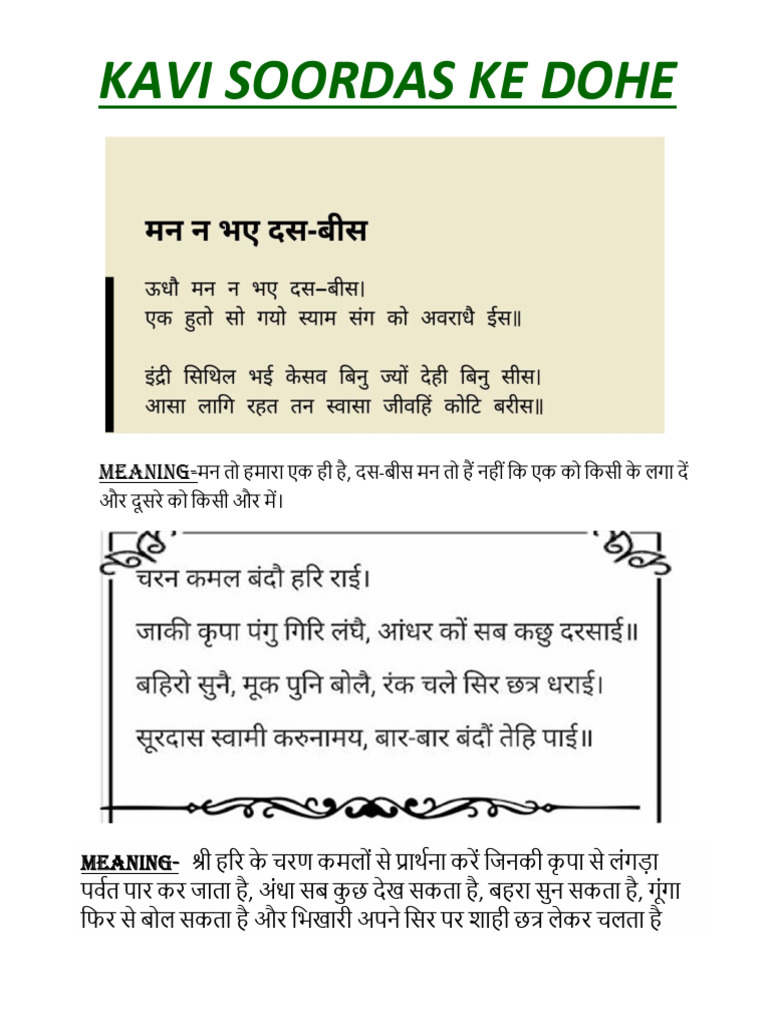 KAVI SOORDAS KE DOHE
मन न भए दस-बीस
ऊधौ मन न भए दस–बीस।
एक हुतो सो गयो स्याम संग को अवराधै ईस॥
इंद्री सिथिल भई केसव बिनु ज्यों देही बिनु सीस।
आसा लागि रहत तन स्वासा जीवहिं कोटि बरीस॥
MEANING-मन तो हमारा एक ही है, दस-बीस मन तो हैं नहीं कि एक को किसी के लगा दें
और दूसरे को किसी और में।
चरन कमल बंदौ हरि राई।
जाकी कृपा पंगु गिरि लंघै, आंधर कों सब कछु दरसाई॥
बहिरो सुनै, मूक पुनि बोलै, रंक चले सिर छत्र धराई।
सूरदास स्वामी करुनामय, बार-बार बंदौं तेहि पाई॥
MEANING- श्री हरि के चरण कमलों से प्रार्थना करें जिनकी कृपा से लंगड़ा
पर्वत पार कर जाता है, अंधा सब कुछ देख सकता है, बहरा सुन सकता है, गूंगा
फिर से बोल सकता है और भिखारी अपने सिर पर शाही छत्र लेकर चलता है